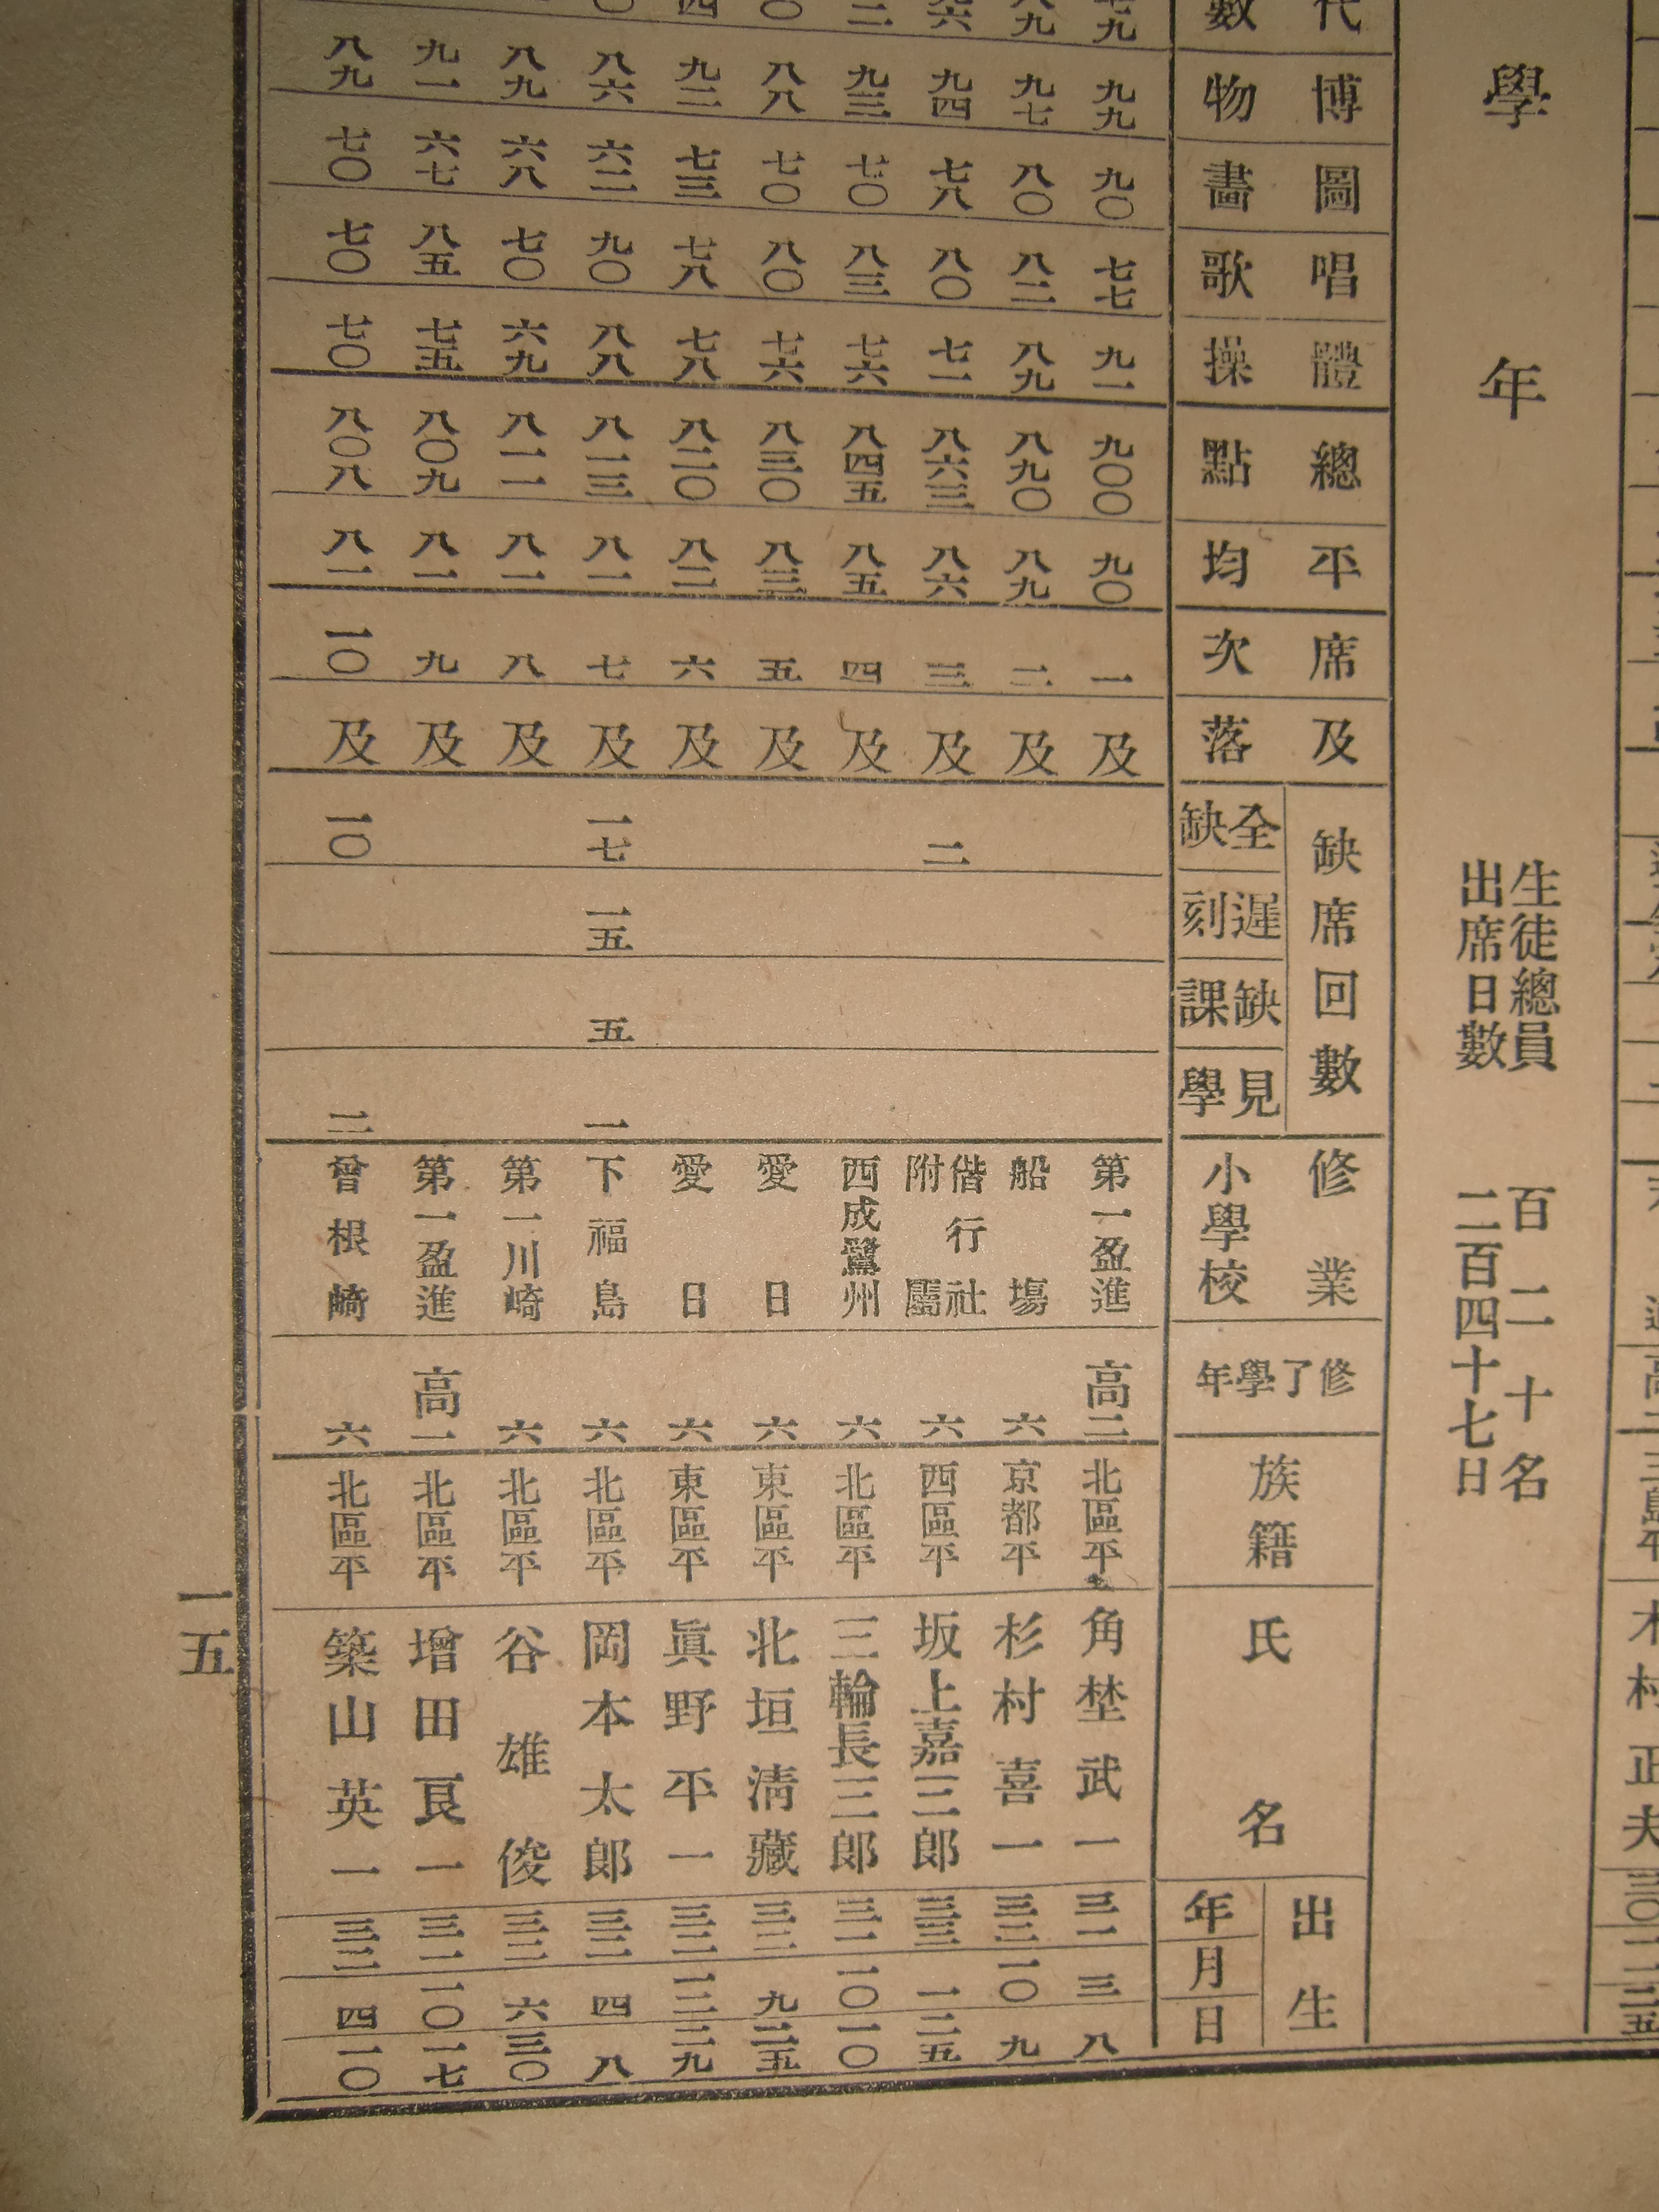 木村正夫
學年
生徒總員 百二十名
出席日數 二百四十七日
代數 博物 圖畫 唱歌 體操 總點 平均 席次 及落 缺席回數 全缺 遲刻 缺課 見學 修業小學校 修了學年 族籍 氏名 出生 年 月 日
九九 九〇 七七 九一 九〇〇 九〇 一 及 第一盈進 高二 北區平 角埜武一 三一 三 八
八九 九七 八〇 八二 八九 八九〇 八九 二 及 船塲 六 京都平 杉村喜一 三二 一〇 九
九四 七八 八〇 七一 八六三 八六 三 及 二 偕行社附屬 六 西區平 坂上嘉三郎 三三 一 二五
九三 七〇 八三 七六 八四五 八五 四 及 西成鷺州 六 北區平 三輪長三郎 三一 一〇 一〇
八八 七〇 八〇 七六 八三〇 八三 五 及 愛日 六 東區平 北垣淸藏 三二 九 二五
九二 七三 七八 七八 八二〇 八二 六 及 愛日 六 東區平 眞野平一 三二 一二 二九
八六 六二 九〇 八八 八一三 八一 七 及 一七 一五 五 一 下福島 六 北區平 岡本太郎 三二 四 八
八九 六八 七〇 六九 八一一 八一 八 及 第一川崎 六 北區平 谷雄俊 三二 六 三〇
九一 六七 八五 七五 八〇九 八一 九 及 第一盈進 高一 北區平 增田良一 三一 一〇 一七
八九 七〇 七〇 七〇 八〇八 八一 一〇 及 一〇 二 曾根崎 六 北區平 築山英一 三二 四 一〇
一五